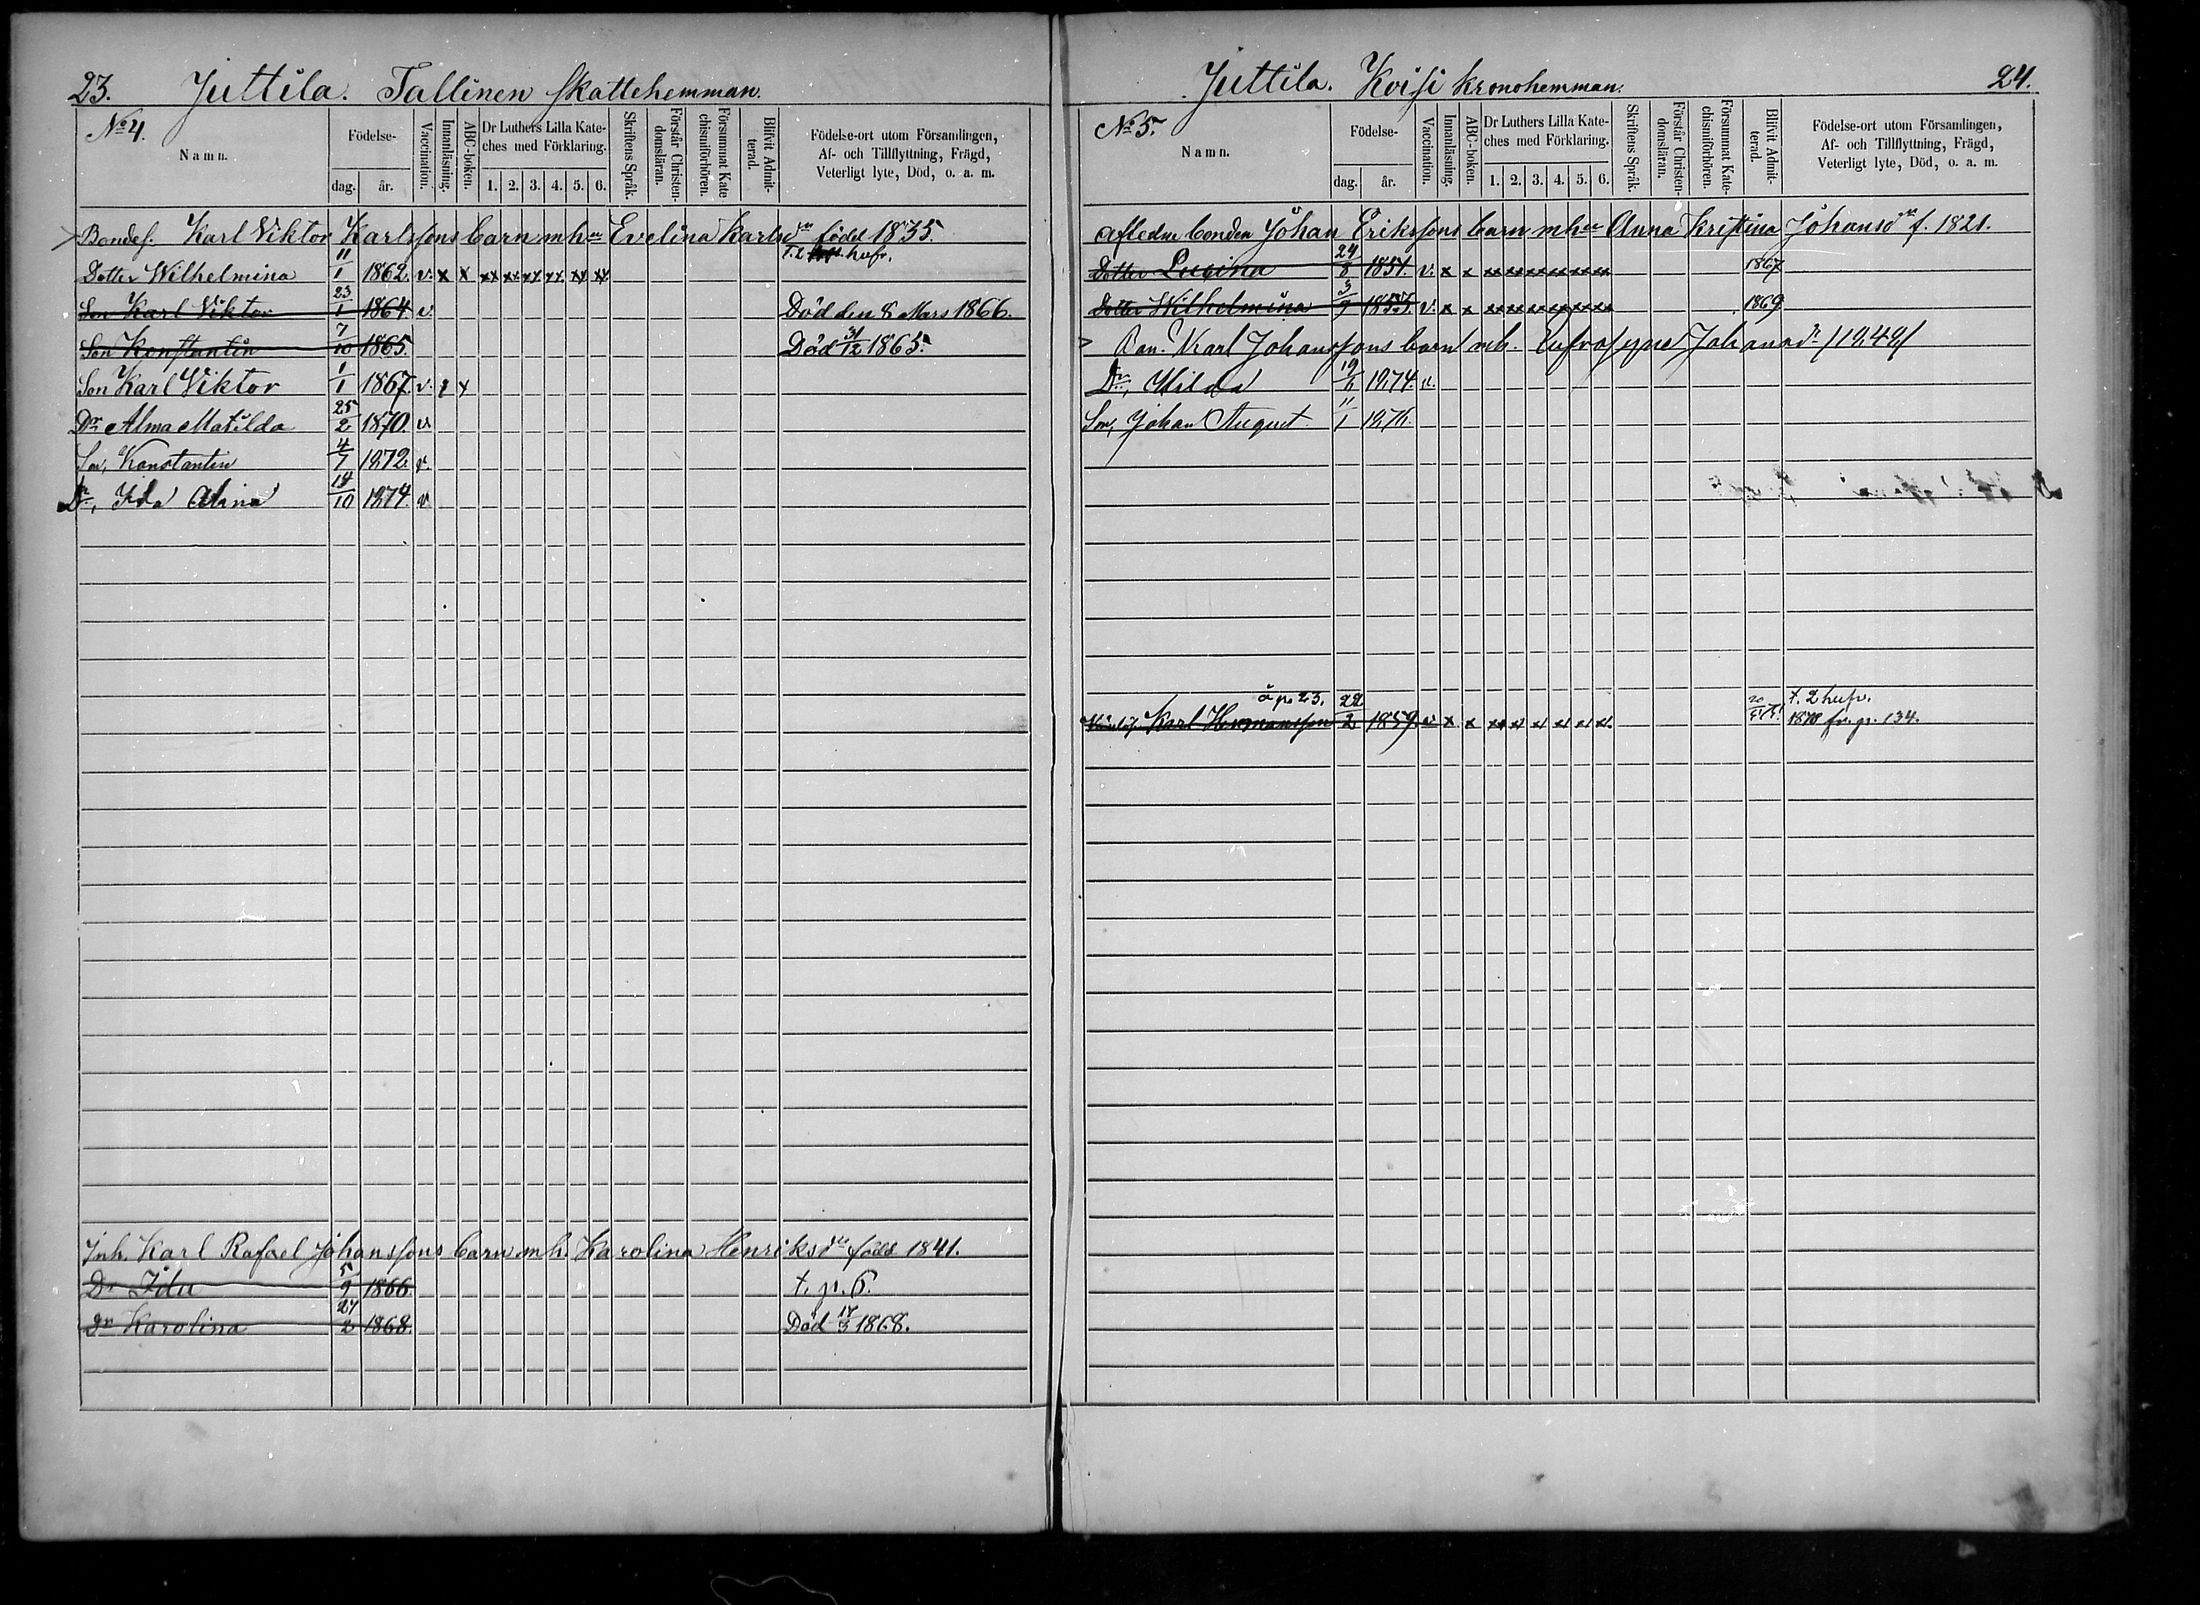 23. Juttila. Tallinen skattehemman.
No 4.
Namn.
Födelse-
dag. år.
Vaccination.
Innanläsning.
ABC-boken.
Dr Luthers Lilla Kate-
ches med Förklaring.
1. 2. 3. 4. 5. 6.
Skriftens Språk.
Förstår Christen-
domsläran.
Försummat Kate
chismiförhören.
Blifvit Admit-
terad.
Födelse-ort utom Församlingen,
Af- och Tillflyttning, Frägd,
Veterligt lyte, Död, o. a. m.
Bondes. Karl Viktor Karlssons barn m hu Evelina Karlsdr född 1835.
Dotter Wilhelmina 11/1 1862. v. x x xx xx xx xx xx xx
Son Karl Viktor 23/1 1864 v. Död den 8 Mars 1866.
Son Konstantin 7/10 1865. Död 31/12 1865.
Son Karl Viktor 1/1 1867. v.
Dr Alma Matilda 25/2 1870. v
Son, Konstantin 4/7 1872. v.
Dr, Ida Alina 14/10 1874. v
Inh. Karl Rafael Johanssons barn m h. Karolina Henriksdr född 1841.
Dr Ida 5/9 1866 t. p. 6.
Dr Karolina 27/2 1868. Död 17/3 1868.
Juttila. Koisi kronohemman. 24.
No 5.
Namn.
Födelse-
dag. år.
Vaccination.
Innanläsning.
ABC-boken.
Dr Luthers Lilla Kate-
ches med Förklaring.
1. 2. 3. 4. 5. 6.
Skriftens Språk.
Förstår Christen-
domsläran.
Försummat Kate-
chismiförhören.
Blifvit Admit-
terad.
Födelse-ort utom Församlingen,
Af- och Tillflyttning, Frägd,
Veterligt lyte, Död, o. a. m.
Afledne bonden Johan Erikssons barn m hu Anna Kristina Johansdr f. 1821.
Dotter Lovina 24/8 1851. v. x x xx xx xx xx xx xx 1867
Dotter Wilhelmina 3/9 1855. v. x x xx xx xx xx xx xx 1869
Bon. Karl Johanssons barn m h. Eufrosyne Johansdr /1848/
Dr, Hilda 19/6 1874. v.
Son, Johan August 11/1 1876.
å p. 23. t. 2 hufv.
Karl Hermansson 22/2 1859. v. x x xx xx xx xx xx xx 1878 fr. p. 134.